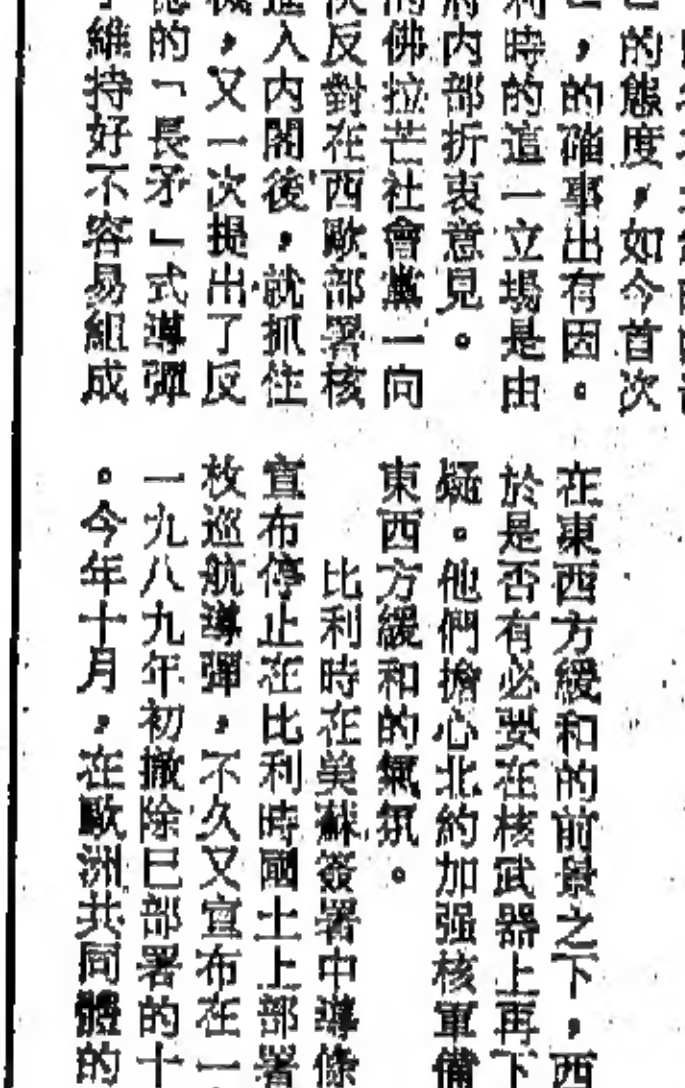 的態度，如今首次
，的確事出有因。
利時的這一立場是由
府內部折衷意見。
的佛拉芒社會黨一向
次反對在西歐部署核
進入內閣後，就抓住
機，又一次提出了反
德的「長矛」式導彈
了維持好不容易組成
在東西方緩和的前景之下，西
於是否有必要在核武器上再下
疑。他們擔心北約加强核軍備
東西方緩和的氣氛。
比利時在美蘇簽署中導條
宣布停止在比利時國土上部署
枚巡航導彈，不久又宣布在一
一九八九年初撤除已部署的十
。今年十月，在歐洲共同體的